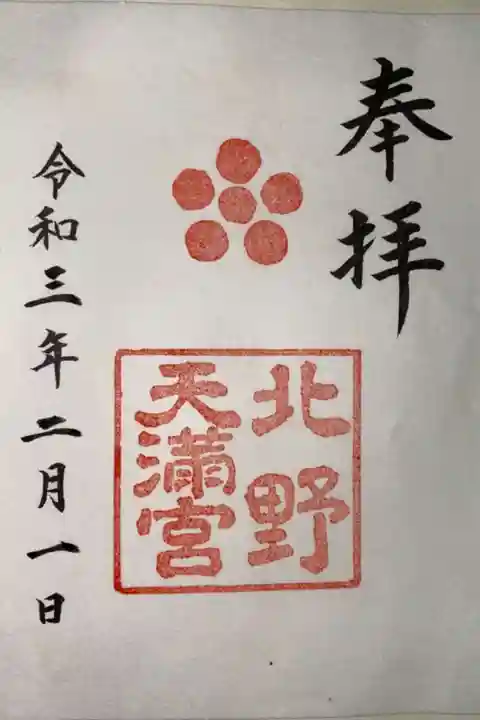 奉拝
北野
天満宮
令和三年二月一日